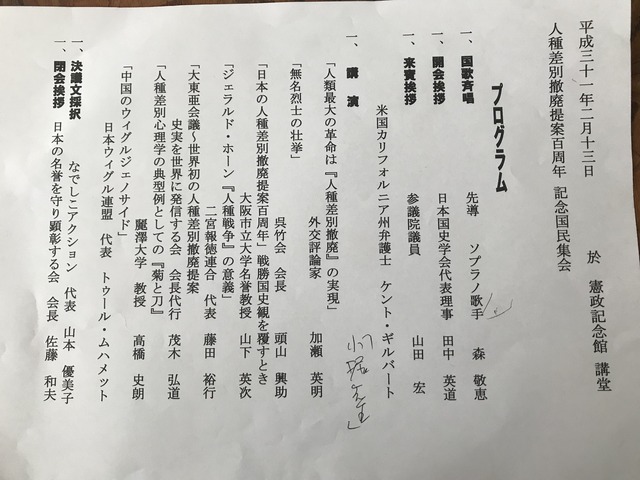 平成三十一年二月十三日 於 憲政記念館 講堂
人種差別撤廃提案百周年 記念国民集会
プログラム
一、国歌斉唱 先導 ソプラノ歌手 森 敬恵
一、開会挨拶 日本国史学会代表理事 田中 英道
一、来賓挨拶 参議院議員 山田 宏
米国カリフォルニア州弁護士 ケント・ギルバート
一、講演
「人類最大の革命は『人種差別撤廃』の実現」
外交評論家 加瀬 英明
「無名烈士の壮挙」
呉竹会 会長 頭山 興助
「日本の人種差別撤廃提案百周年」戦勝国史観を覆すとき
大阪市立大学名誉教授 山下 英次
「ジェラルド・ホーン『人種戦争』の意義」
二宮報徳連合 代表 藤田 裕行
「大東亜会議〜世界初の人種差別撤廃提案
史実を世界に発信する会 会長代行 茂木 弘道
「人種差別心理学の典型例としての『菊と刀』
麗澤大学 教授 高橋 史朗
「中国のウィグルジェノサイド」
日本ウィグル連盟 代表 トゥール・ムハメット
一、決議文採択 なでしこアクション 代表 山本 優美子
一、閉会挨拶 日本の名誉を守り顕彰する会 会長 佐藤 和夫